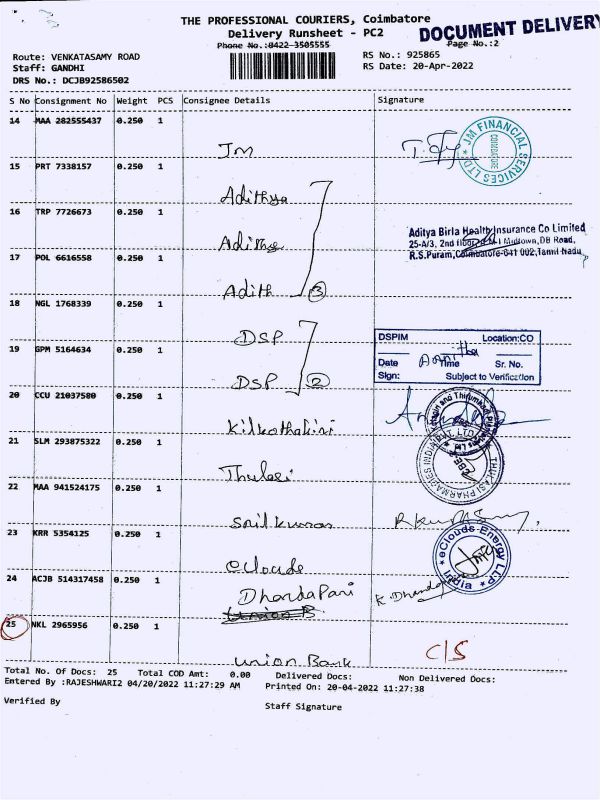 THE PROFESSIONAL COURIERS, Coimbatore
Delivery Runsheet - PC2
DOCUMENT DELIVERY
Phone No.:0422-3505555
Page No.:2
Route: VENKATASAMY ROAD
RS No.: 925865
Staff: GANDHI
RS Date: 20-Apr-2022
DRS No.: DCJB92586502
S No Consignment No Weight PCS Consignee Details Signature
14 MAA 282555437 0.250 1
Jm
JM FINANCIAL SERVICES LTD COIMBATORE
15 PRT 7338157 0.250 1
Adithya
16 TRP 7726673 0.250 1
Adithya
Aditya Birla Health Insurance Co Limited
25-A/3, 2nd floor, Midtown, DB Road,
R.S.Puram, Coimbatore-641 002, Tamil Nadu
17 POL 6616558 0.250 1
Adith 3
18 NGL 1768339 0.250 1
DSP
DSPIM Location:CO
19 GPM 5164634 0.250 1
Date Time Sr. No.
Sign: Subject to Verification
DSP 2
20 CCU 21037580 0.250 1
Kilkothakiri
21 SLM 293875322 0.250 1
Thulasi
THULASI PHARMACIES INDIA PVT. LTD
22 MAA 941524175 0.250 1
Sril kumar
23 KRR 5354125 0.250 1
eClouds
eClouds Energy LLP India
24 ACJB 514317458 0.250 1
DhandaPani
K. Dhanda
Union B
25 NKL 2965956 0.250 1
Union Bank
C/S
Total No. Of Docs: 25 Total COD Amt: 0.00 Delivered Docs: Non Delivered Docs:
Entered By :RAJESHWARI2 04/20/2022 11:27:29 AM Printed On: 20-04-2022 11:27:38
Verified By
Staff Signature